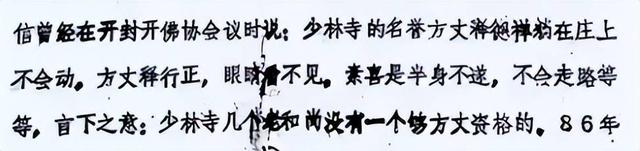 信曾经在开封开佛协会议时说：少林寺的名誉方丈释德祥躺在庄上
不会动。方丈释行正，眼睛看不见。素喜是半身不遂，不会走路等
等，言下之意：少林寺几个老和尚没有一个够方丈资格的。86年